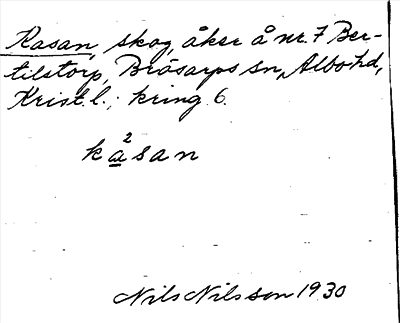 Kasan, skog, åker å nr. 7 Ber-
tilstorp, Bråsarps sn, Albo hd,
Krist. l.; kring 6.
ka²san
Nils Nilsson 1930